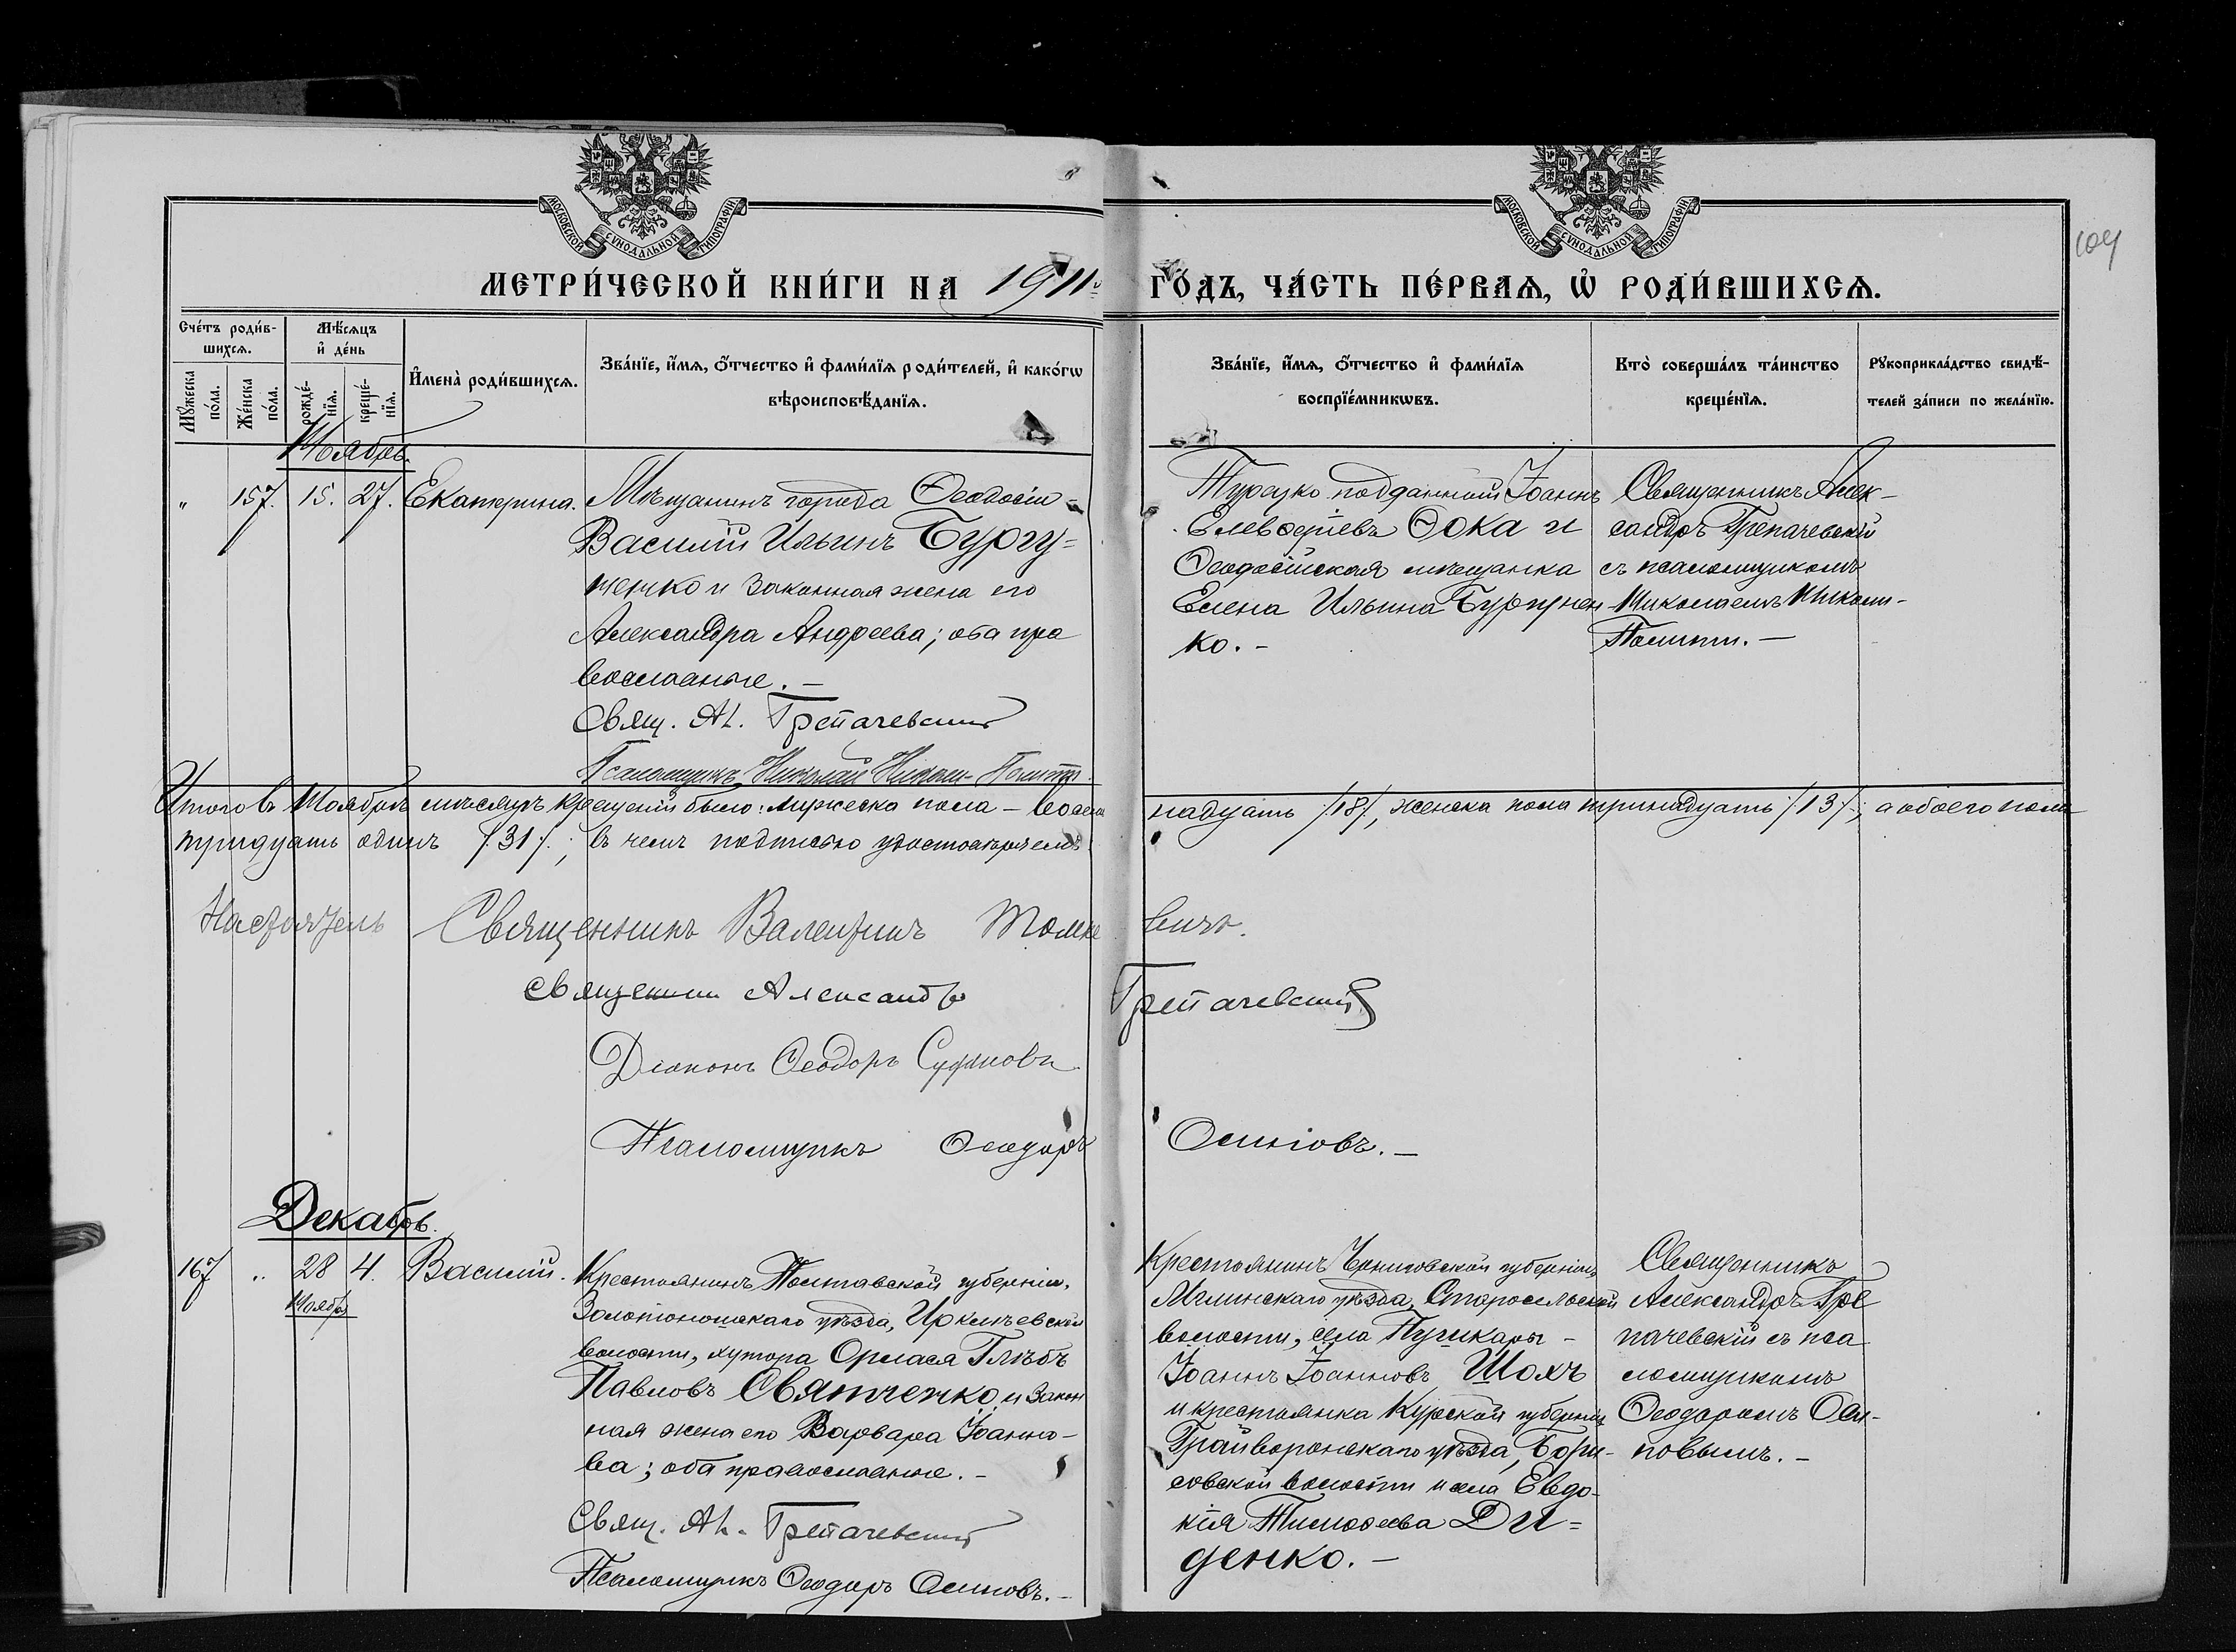 МОСКОВСКОЙ СѴНОДАЛЬНОЙ ТИПОГРАФІИ
МОСКОВСКОЙ СѴНОДАЛЬНОЙ ТИПОГРАФІИ
104
МЕТРИ́ЧЕСКОЙ КНИ́ГИ НА 1911
ГО́ДЪ, ЧА́СТЬ ПЕ́РВАѦ, Ѡ҆ РОДИ́ВШИХСѦ.
Сче́тъ роди́в-
шихсѧ.
Мꙋ́жеска по́ла.
Же́нска по́ла.
Мѣ́сѧцъ
и҆ де́нь
рожде́-нїѧ.
креще́-нїѧ.
И҆мена̀ роди́вшихсѧ.
Зва́нїе, и҆́мѧ, ѻ҆́тчество и҆ фами́лїѧ роди́телей, и҆ како́гѡ
вѣроисповѣ́данїѧ.
Зва́нїе, и҆́мѧ, ѻ҆́тчество и҆ фами́лїѧ
воспрїе́мникѡвъ.
Кто̀ соверша́лъ та́инство
креще́нїѧ.
Рꙋкоприкла́дство свидѣ́-
телей за́писи по жела́нїю.
Ноябрь.
" 157. 15. 27. Екатерина.
Мѣщанинъ города Ѳеодосіи
Василій Ильинъ Бургу=
ненко и законная жена его
Александра Андреева; оба пра
вославные. —
Свящ. Ал. Грепачевскій
Псаломщикъ Николай Николи-Политти.
Турецко подданный Іоаннъ
Елевѳеріевъ Ѳока и
Ѳеодосійская мѣщанка
Елена Ильина Бургунен
ко. -
Священникъ Алек-
сандръ Грепачевскій
съ псаломщикомъ
Николаемъ Николи-
Политти. —
Итого въ Ноябрѣ мѣсяцѣ крещеній было: мужеска пола — восем
надцать /18/, женска пола тринадцать /13/; а обоего пола
тридцать одинъ /31/.; въ чемъ подписью удостовѣряемъ
Настоятель Священникъ Валентинъ Томке
вичъ.
священникъ Александръ
Грепачевскій
Діаконъ Ѳеодоръ
Псаломщикъ Ѳеодоръ
Осиповъ. —
Декабрь.
167 " 28 4. Василій.
Ноября
Крестьянинъ Полтавской губерніи,
Золотоношскаго уѣзда, Ирклѣевской
волости, хутора Глѣбъ
Павловъ Святченко и закон
ная жена его Варвара Іоанно-
ва; оба православные. -
Свящ. Ал. Грепачевскій
Псаломщикъ Ѳеодоръ Осиповъ. —
Крестьянинъ Черниговской губерніи
Мглинскаго уѣзда, Старосельской
волости, села Пушкары -
Іоаннъ Іоанновъ Шохъ
и крестьянка Курской губерніи
Грайворонскаго уѣзда, Бори-
совской волости и села Евдо-
кія Тимоѳеева Ди=
денко. —
Священникъ
Александръ Гре
пачевскій съ пса
ломщикомъ
Ѳеодоромъ Оси-
повымъ. —